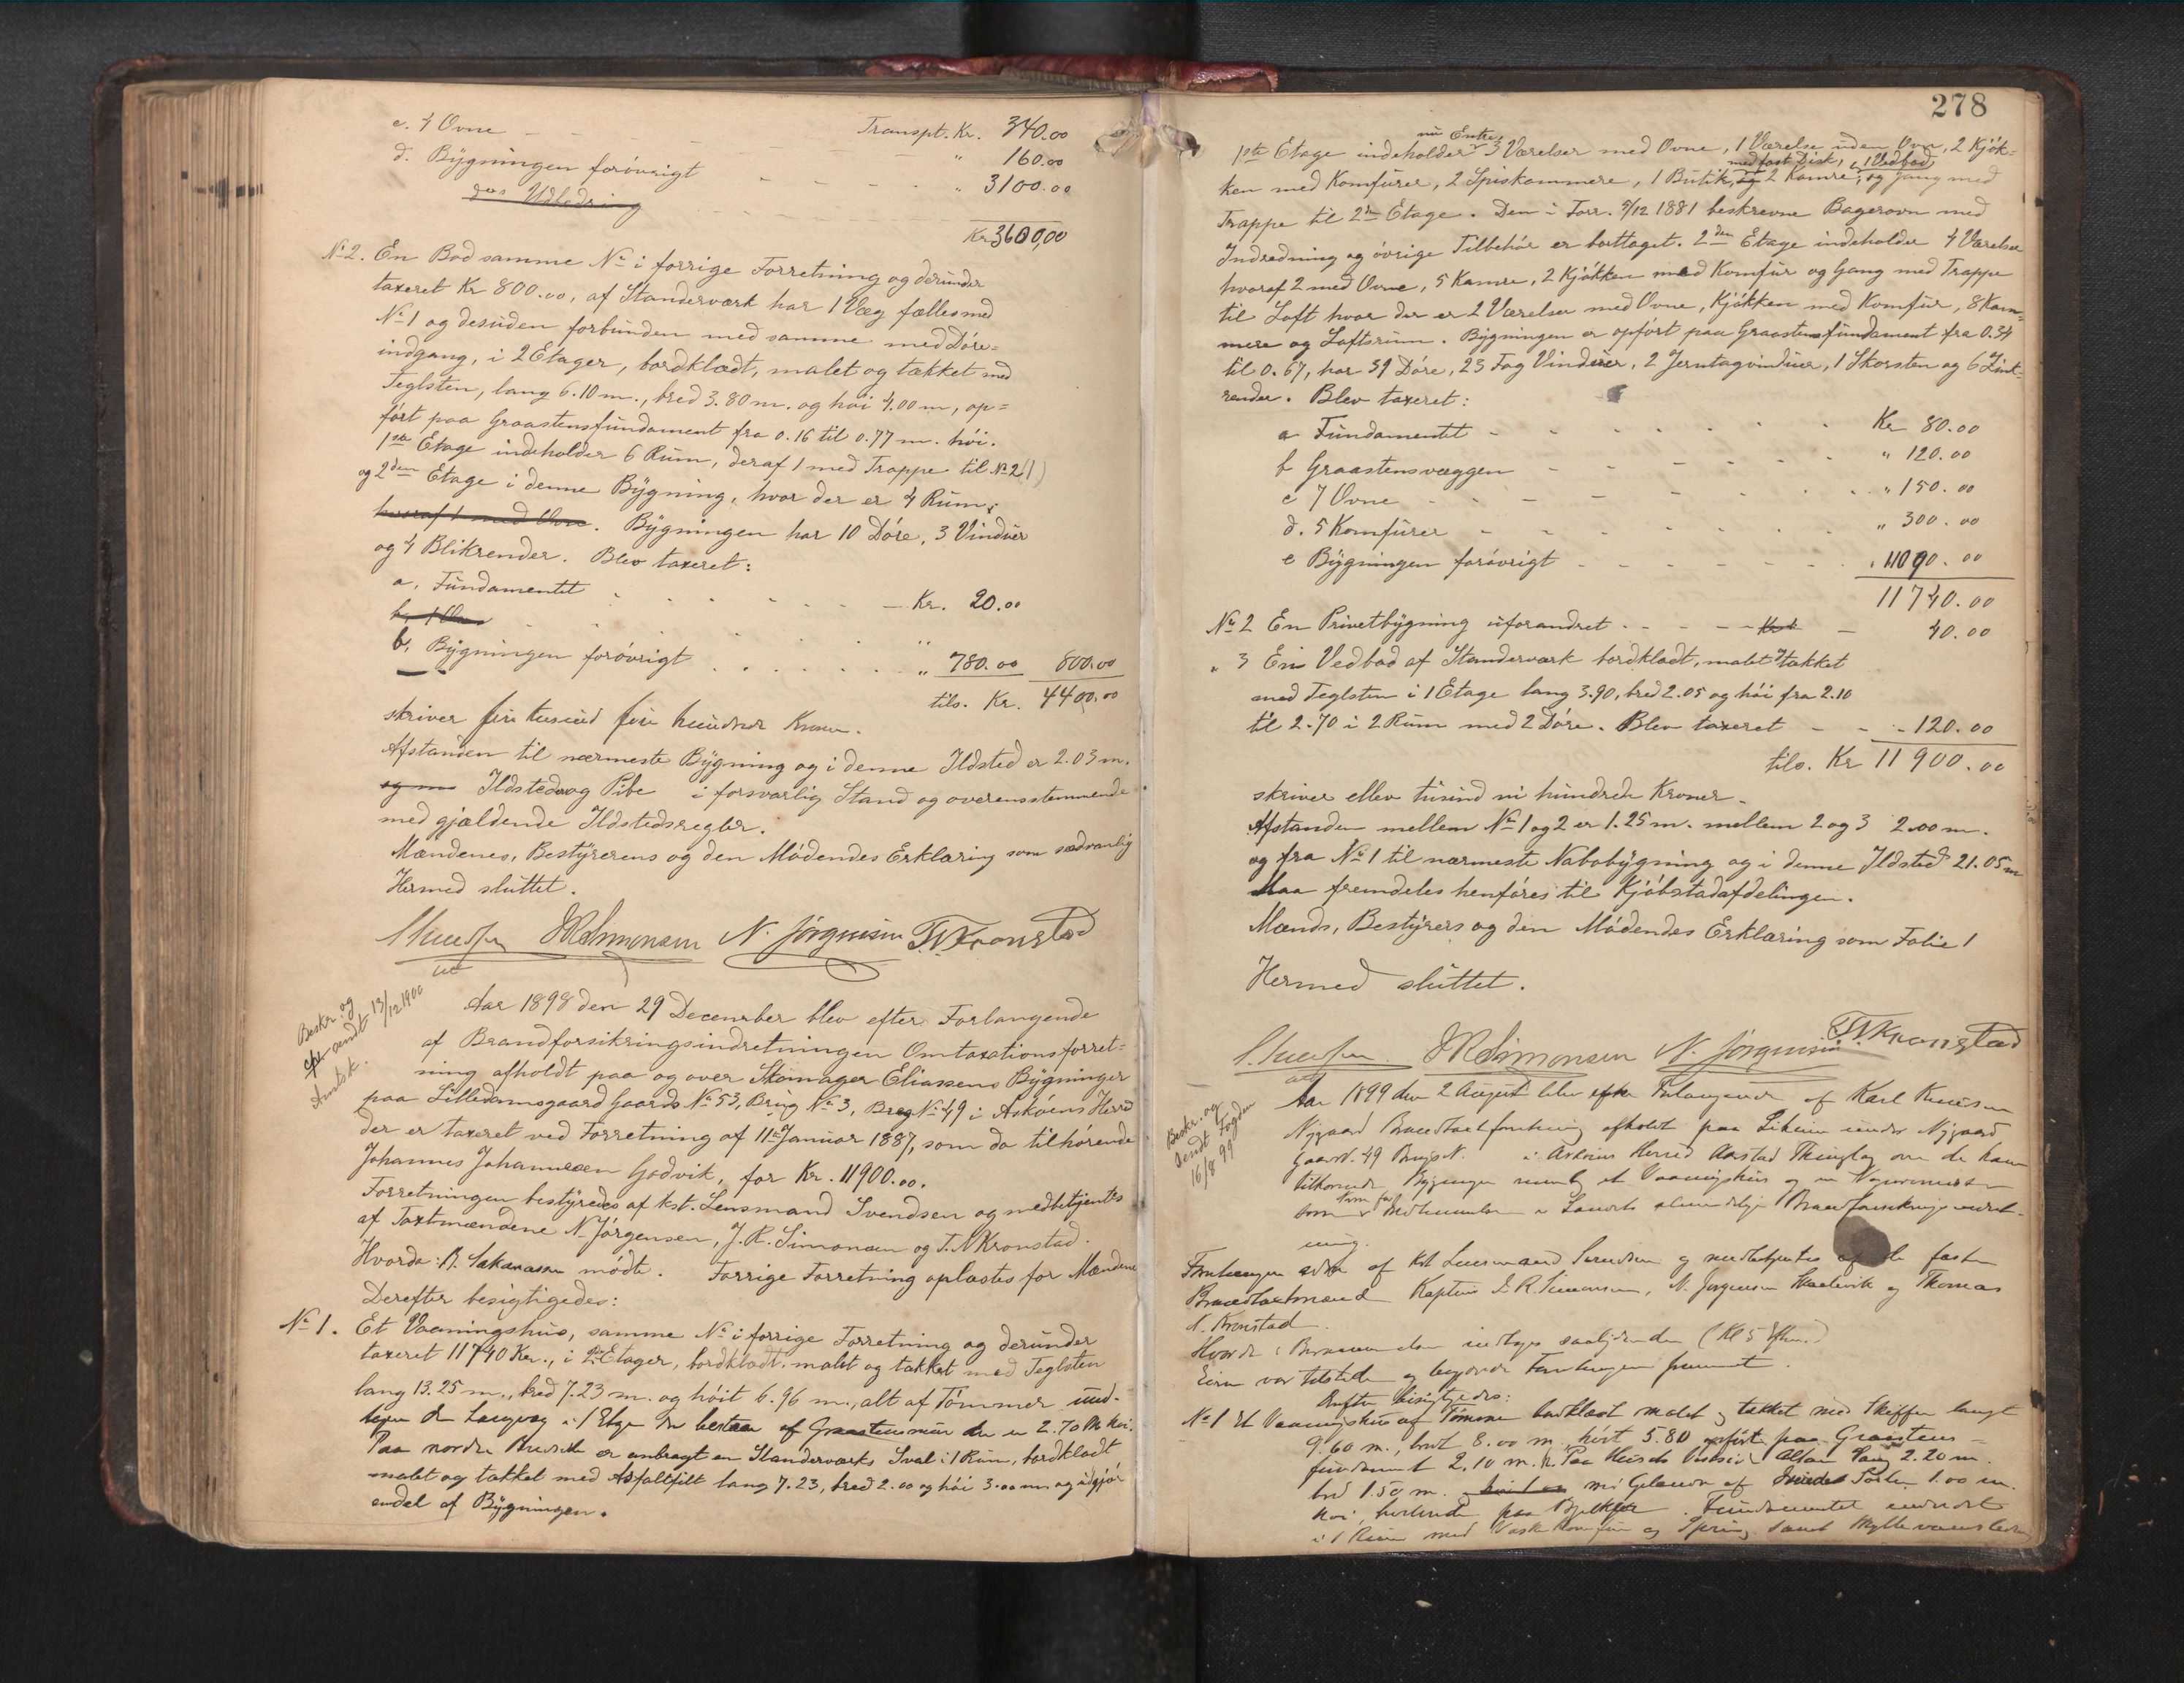 Transpt. Kr. 340.00
c. 4 Ovne " 160.00
d. Bygningen forøvrigt " 3100.00
Udbedring
Kr 3600,00
No 2. En Bod samme No i forrige Forretning og derunder
taxeret Kr 800.00, af Standerværk har 1 Væg fælles med
No 1 og desuden forbunden med samme med Døre=
indgang, i 2 Etager, bordklædt, malet og tækket med
Teglsten, lang 6.10 m., bred 3.80 m. og høi 4.00 m, op=
ført paa Graastensfundament fra 0.16 til 0.77 m. høi.
1ste Etage indeholder 6 Rum, deraf 1 med Trappe til No 2(1)
og 2den Etage i denne Bygning, hvor der er 4 Rum;
hvoraf 1 med Ovn. Bygningen har 10 Døre, 3 Vinduer
og 4 Blikrender. Blev taxeret:
a. Fundamentet Kr. 20.00
b. 1 Ovn "
b. Bygningen forøvrigt " 780.00 800.00
tils. Kr. 4400.00
skriver fire tusind fire hundrede Kroner.
Afstanden til nærmeste Bygning og i denne Ildsted er 2.03 m.
Ildsteder og Pibe i forsvarlig Stand og overensstemmende
med gjældende Ildstedsregler.
Mændenes, Bestyrerens og den Mødendes Erklæring som sædvanlig
Hermed sluttet.
Svendsen J R Simonsen N. Jörgensen T. N. Kronstad
Beskr. og
sendt 13/12 1900
Amtsk.
Aar 1898 den 29 December blev efter Forlangende
af Brandforsikringsindretningen Omtaxationsforret=
ning afholdt paa og over Skomager Eliassens Bygninger
paa Lilledamsgaard Gaards No 53, Brug No 3, Brog No 49 i Askøens Herred
der er taxeret ved Forretning af 11te Januar 1887, som da tilhørende
Johannes Johannesen Godvik, for Kr. 11900.00.
Forretningen bestyredes af kst. Lensmand Svendsen og medbetjentes
af Taxtmændene N Jörgensen, J. R. Simonsen og T. N Kronstad.
Hvorda: B. Sakariassen mødte. Forrige Forretning oplæstes for Mændene
Derefter besigtigedes:
No 1. Et Vaaningshus, samme No i forrige Forretning og derunder
taxeret 11740 Kr., i 2de Etager, bordklædt, malet og tækket med Teglsten
lang 13.25 m., bred 7.23 m. og høit 6.96 m., alt af Tømmer und-
tagen den Langvæg i 1 Etage der bestaar af Graastensmur der er 2.70 M høi.
Paa nordre er anbragt en Standerværks Sval i 1 Rum, bordklædt
malet og tækket med Asfaltfilt lang 7.23, bred 2.00 og høi 3.00 m og udgjør
endel af Bygningen.
278
1ste Etage indeholder nu Entre, 3 Værelser med Ovne, 1 Værelse uden Ovn, 2 Kjøk=
ken med Komfurer, 2 Spiskammere, 1 Butik, med fast Disk, og 2 Kamre, 1 Vedbod, og Gang med
Trappe til 2den Etage. Den i Forr. 9/12 1881 beskrevne Bagerovn med
Indredning og øvrige Tilbehør er borttaget. 2den Etage indeholder 4 Værelser
hvoraf 2 med Ovne, 5 Kamre, 2 Kjøkken med Komfur og Gang med Trappe
til Loft hvor der er 2 Værelser med Ovne, Kjøkken med Komfur, 8 Kam=
mere og Loftsrum. Bygningen er opført paa Graastensfundament fra 0.34
til 0.67, har 39 Døre, 23 Fag Vinduer, 2 Jerntagvinduer, 1 Skorsten og 6 Zink=
render. Blev taxeret:
a Fundamentet Kr 80.00
b Graastensvæggen " 120.00
c 7 Ovne " 150.00
d. 5 Komfurer " 300.00
e Bygningen forøvrigt " 11090.00
11740.00
No 2 En Privetbygning uforandret 40.00
" 3 En Vedbod af Standerværk bordklædt, malet og tækket
med Teglsten i 1 Etage lang 3.90, bred 2.05 og høi fra 2.10
til 2.70 i 2 Rum med 2 Døre. Blev taxeret 120.00
tils. Kr 11900.00
skriver ellev tusind ni hundrede Kroner.
Afstanden mellem No 1 og 2 er 1.25 m. mellem 2 og 3 2.00 m.
og fra No 1 til nærmeste Nabobygning og i denne Ildsted 21.05 m
Maa fremdeles henføres til Kjøbstadafdelingen.
Mænds, Bestyrers og den Mødendes Erklæring som Folie 1
Hermed sluttet.
Svendsen J R Simonsen N. Jörgensen T. N. Kronstad
Beskr. og
sendt Fogden
16/8 99
Aar 1899 den 2 August blev efter Forlangende af Karl Knudsen
Nygaard Brandtaxtforretning afholdt paa under Nygaard
Gaards N. 49 Brugs N. i Askøens Herred Aarstad Thinglag over de ham
tilhørende Bygninger nemlig et Vaaningshus og en
som for Bestemmelsen i Landets almindelige Brandforsikringsindret-
ning.
Forretningen af kst Lensmand Svendsen og medbetjentes af de faste
Brandtaxtmænd Kaptein J. R. Simonsen, N. Jørgensen og Thomas
N. Kronstad.
Hvorda: saalydende (Kl 5 Efterm.)
Eieren var tilstede og begjærede Forretningen fremmet.
Derefter besigtigedes:
No 1 Et Vaaningshus af Tømmer bordklædt malet og tækket med Skiffer langt
9.60 m., bredt 8.00 m, høit 5.80 opført paa Graastens-
fundament 2.10 m. h. Paa Husets Altan lang 2.20 m.
bred 1.50 m. med Gelænder af 1.00 m.
høi, hvilende paa . Fundamentet indredet
i 1 Rum med Vaskekomfur og Spring samt Skyllevandsledn.